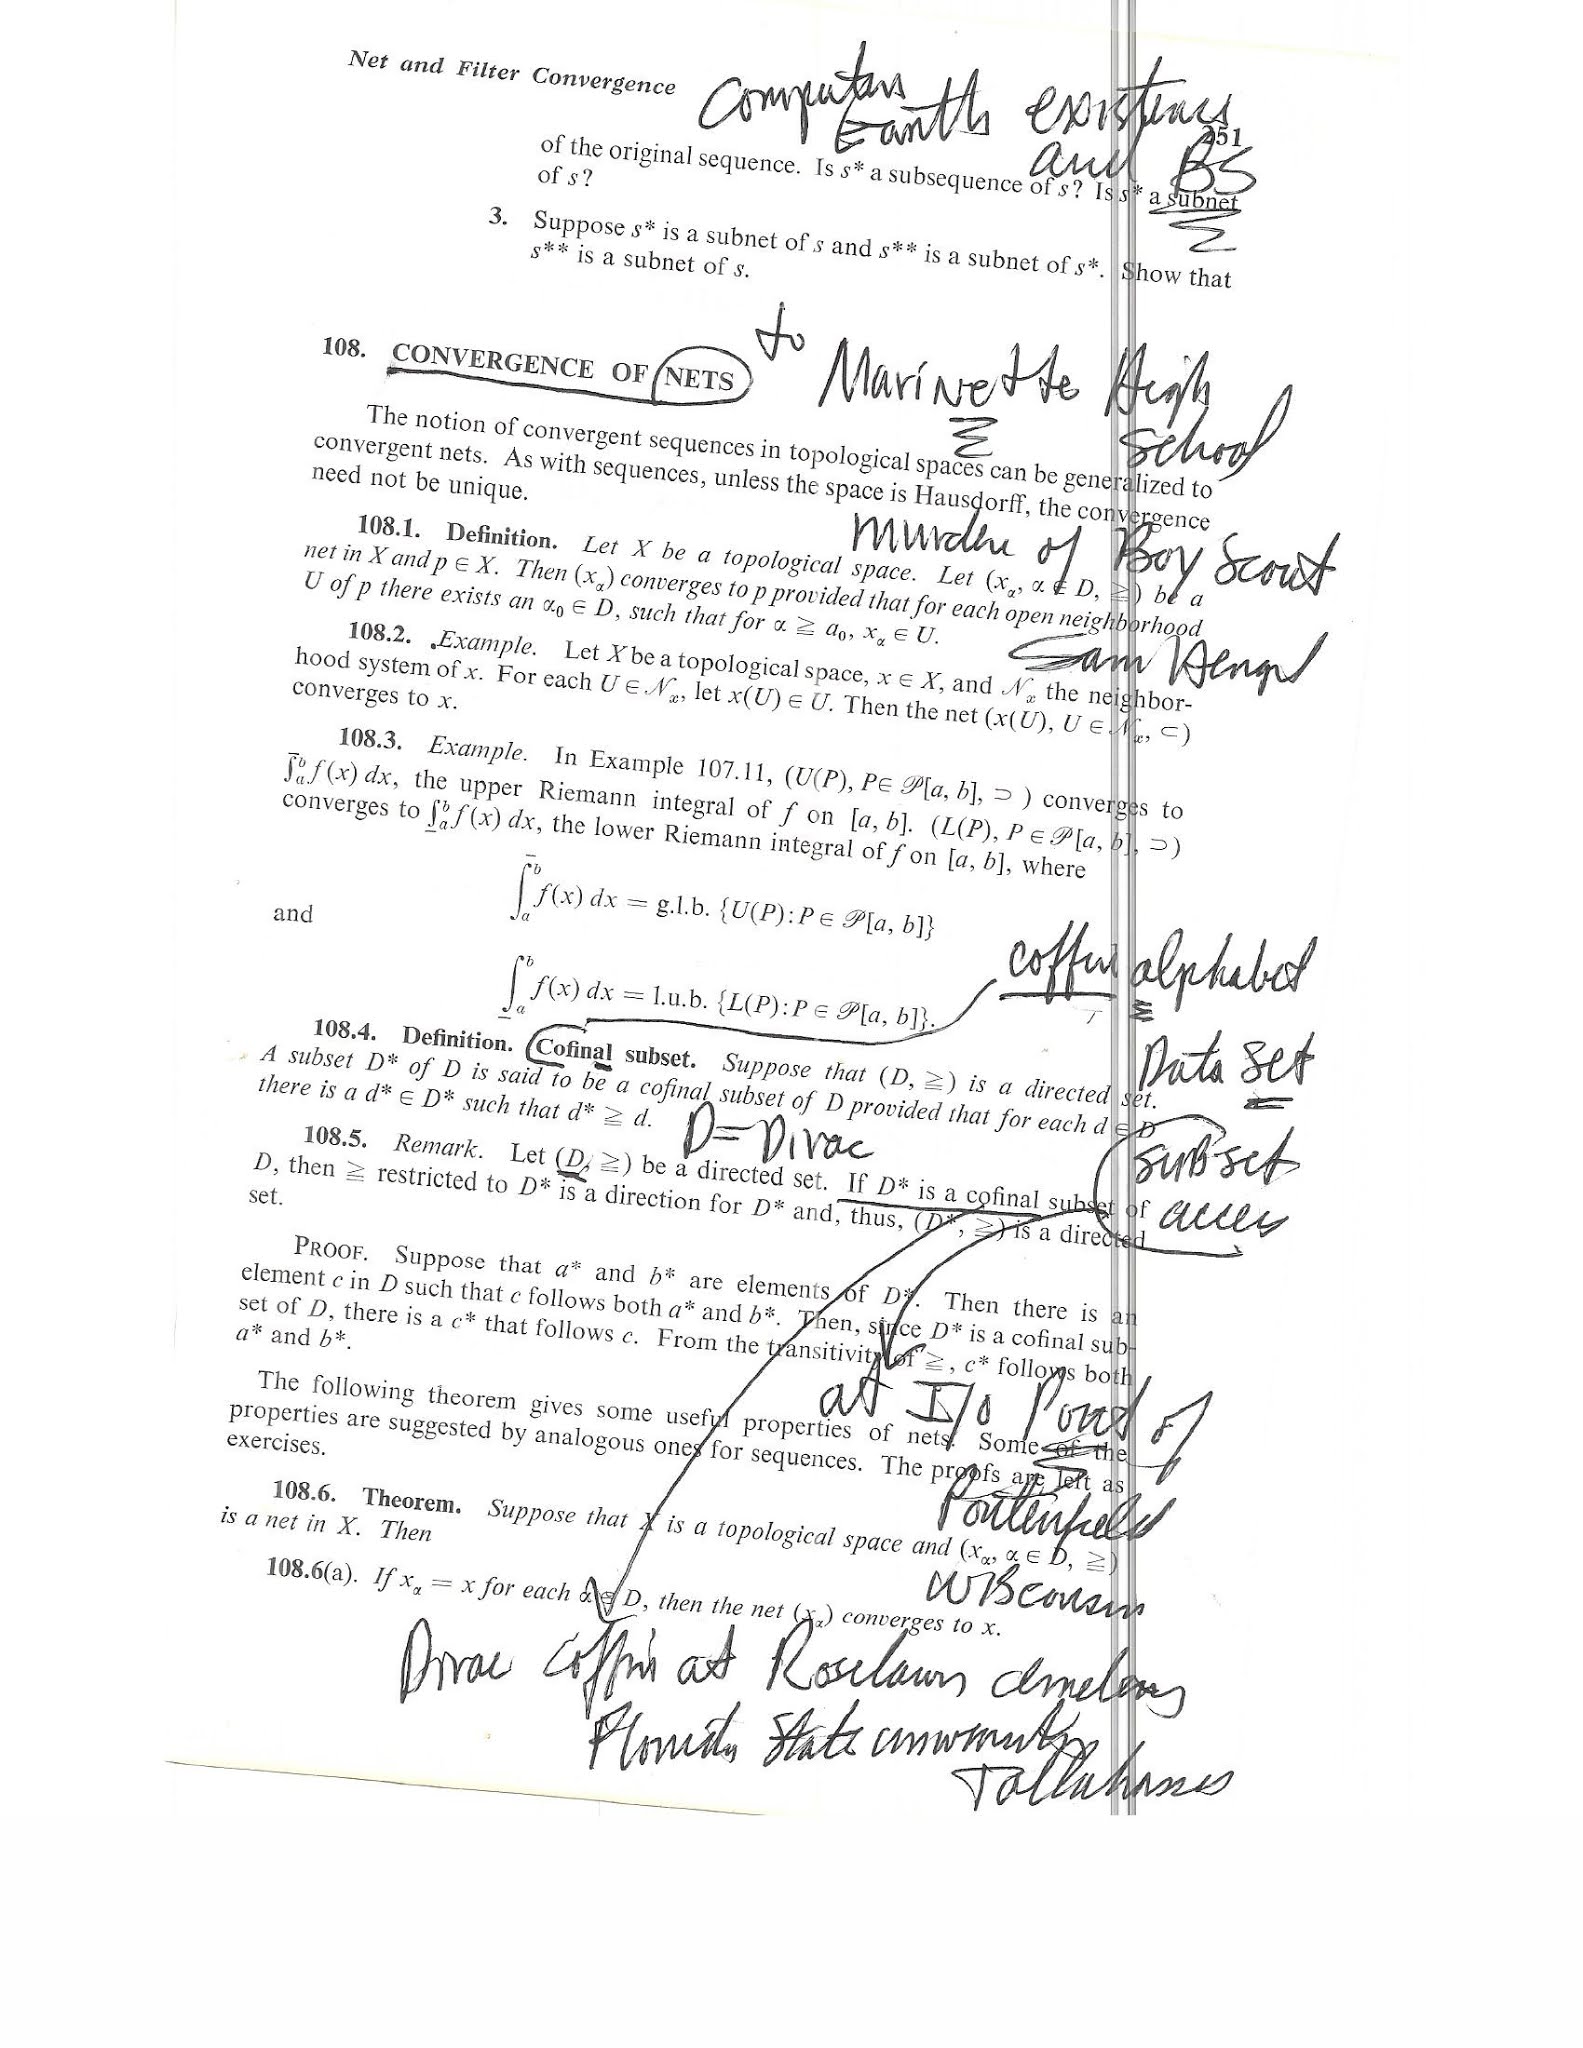 Net and Filter Convergence
Computers
Earth existence
251
and BS
of the original sequence. Is s* a subsequence of s? Is s* a subnet
of s?
3. Suppose s* is a subnet of s and s** is a subnet of s*. Show that
s** is a subnet of s.
to
108. CONVERGENCE OF NETS
Marinette High
School
The notion of convergent sequences in topological spaces can be generalized to
convergent nets. As with sequences, unless the space is Hausdorff, the convergence
need not be unique.
Murder of Boy Scout
108.1. Definition. Let X be a topological space. Let (xα, α ∈ D, ≧) be a
net in X and p ∈ X. Then (xα) converges to p provided that for each open neighborhood
U of p there exists an α₀ ∈ D, such that for α ≧ a₀, xα ∈ U.
Sam Hengel
108.2. Example. Let X be a topological space, x ∈ X, and 𝒩x the neighbor-
hood system of x. For each U ∈ 𝒩x, let x(U) ∈ U. Then the net (x(U), U ∈ 𝒩x, ⊂)
converges to x.
108.3. Example. In Example 107.11, (U(P), P ∈ 𝒫[a, b], ⊃ ) converges to
∫̄ₐᵇ f(x) dx, the upper Riemann integral of f on [a, b]. (L(P), P ∈ 𝒫[a, b], ⊃)
converges to ∫̲ₐᵇ f(x) dx, the lower Riemann integral of f on [a, b], where
∫̄ₐᵇ f(x) dx = g.l.b. {U(P): P ∈ 𝒫[a, b]}
and
coffin alphabet
∫̲ₐᵇ f(x) dx = l.u.b. {L(P): P ∈ 𝒫[a, b]}.
Data Set
108.4. Definition. Cofinal subset. Suppose that (D, ≧) is a directed set.
A subset D* of D is said to be a cofinal subset of D provided that for each d ∈ D
there is a d* ∈ D* such that d* ≧ d.
D = Dirac
subset
access
108.5. Remark. Let (D, ≧) be a directed set. If D* is a cofinal subset of
D, then ≧ restricted to D* is a direction for D* and, thus, (D*, ≧) is a directed
set.
PROOF. Suppose that a* and b* are elements of D*. Then there is an
element c in D such that c follows both a* and b*. Then, since D* is a cofinal sub-
set of D, there is a c* that follows c. From the transitivity of ≧, c* follows both
a* and b*.
at I/O Port of
The following theorem gives some useful properties of nets. Some of the
properties are suggested by analogous ones for sequences. The proofs are left as
exercises.
Porterfield
108.6. Theorem. Suppose that X is a topological space and (xα, α ∈ D, ≧)
is a net in X. Then
Wisconsin
108.6(a). If xα = x for each α ∈ D, then the net (xα) converges to x.
Dirac coffin at Roselawn
Florida State university
Tallahassee